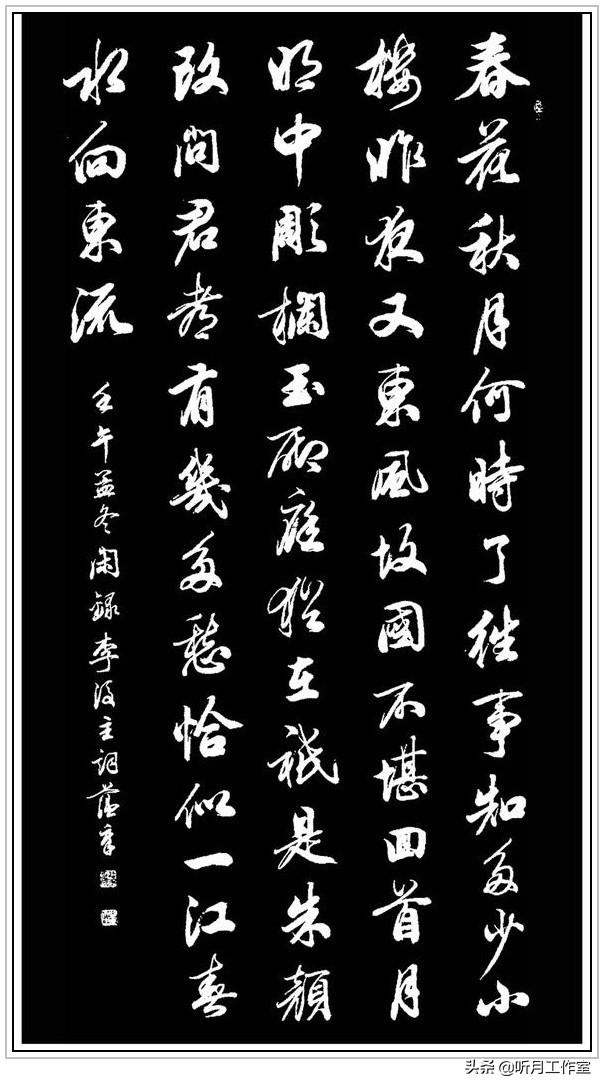 春花秋月何時了往事知多少小
樓昨夜又東風故國不堪回首月
明中彫欄玉砌應猶在祇是朱顏
改問君都有幾多愁恰似一江春
水向東流
壬午孟冬閑錄李後主詞
头条 @听月工作室